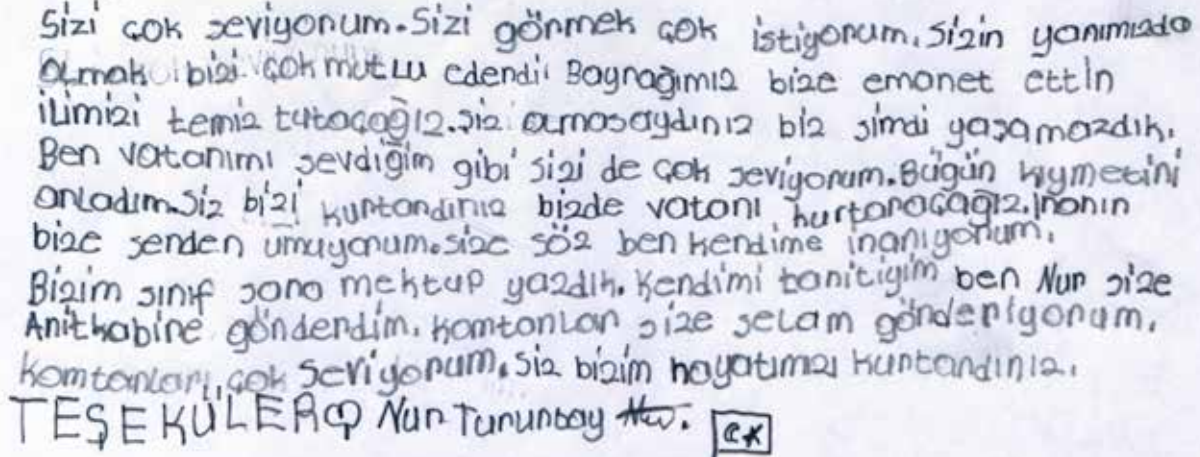 Sizi çok seviyorum. Sizi görmek çok istiyorum. Sizin yanımızda
olmak bizi çok mutlu ederdi. Bayrağımız bize emanet ettin
ilimizi temiz tutacağız. siz olmasaydınız biz şimdi yaşamazdık.
Ben vatanımı sevdiğim gibi sizi de çok seviyorum. Bügün kıymetini
anladım. Siz bizi kurtardınız bizde vatanı kurtaracağız. inanın
bize senden umuyorum. size söz ben kendime inanıyorum.
Bizim sınıf sana mektup yazdık. Kendimi tanitiyim ben Nur size
Anitkabire gönderdim. Komtanlar size selam gönderiyorum.
Komtanları çok seviyorum. Siz bizim hayatımızı kurtardınız.
TEŞEKÜLER Nur Turuntay CK